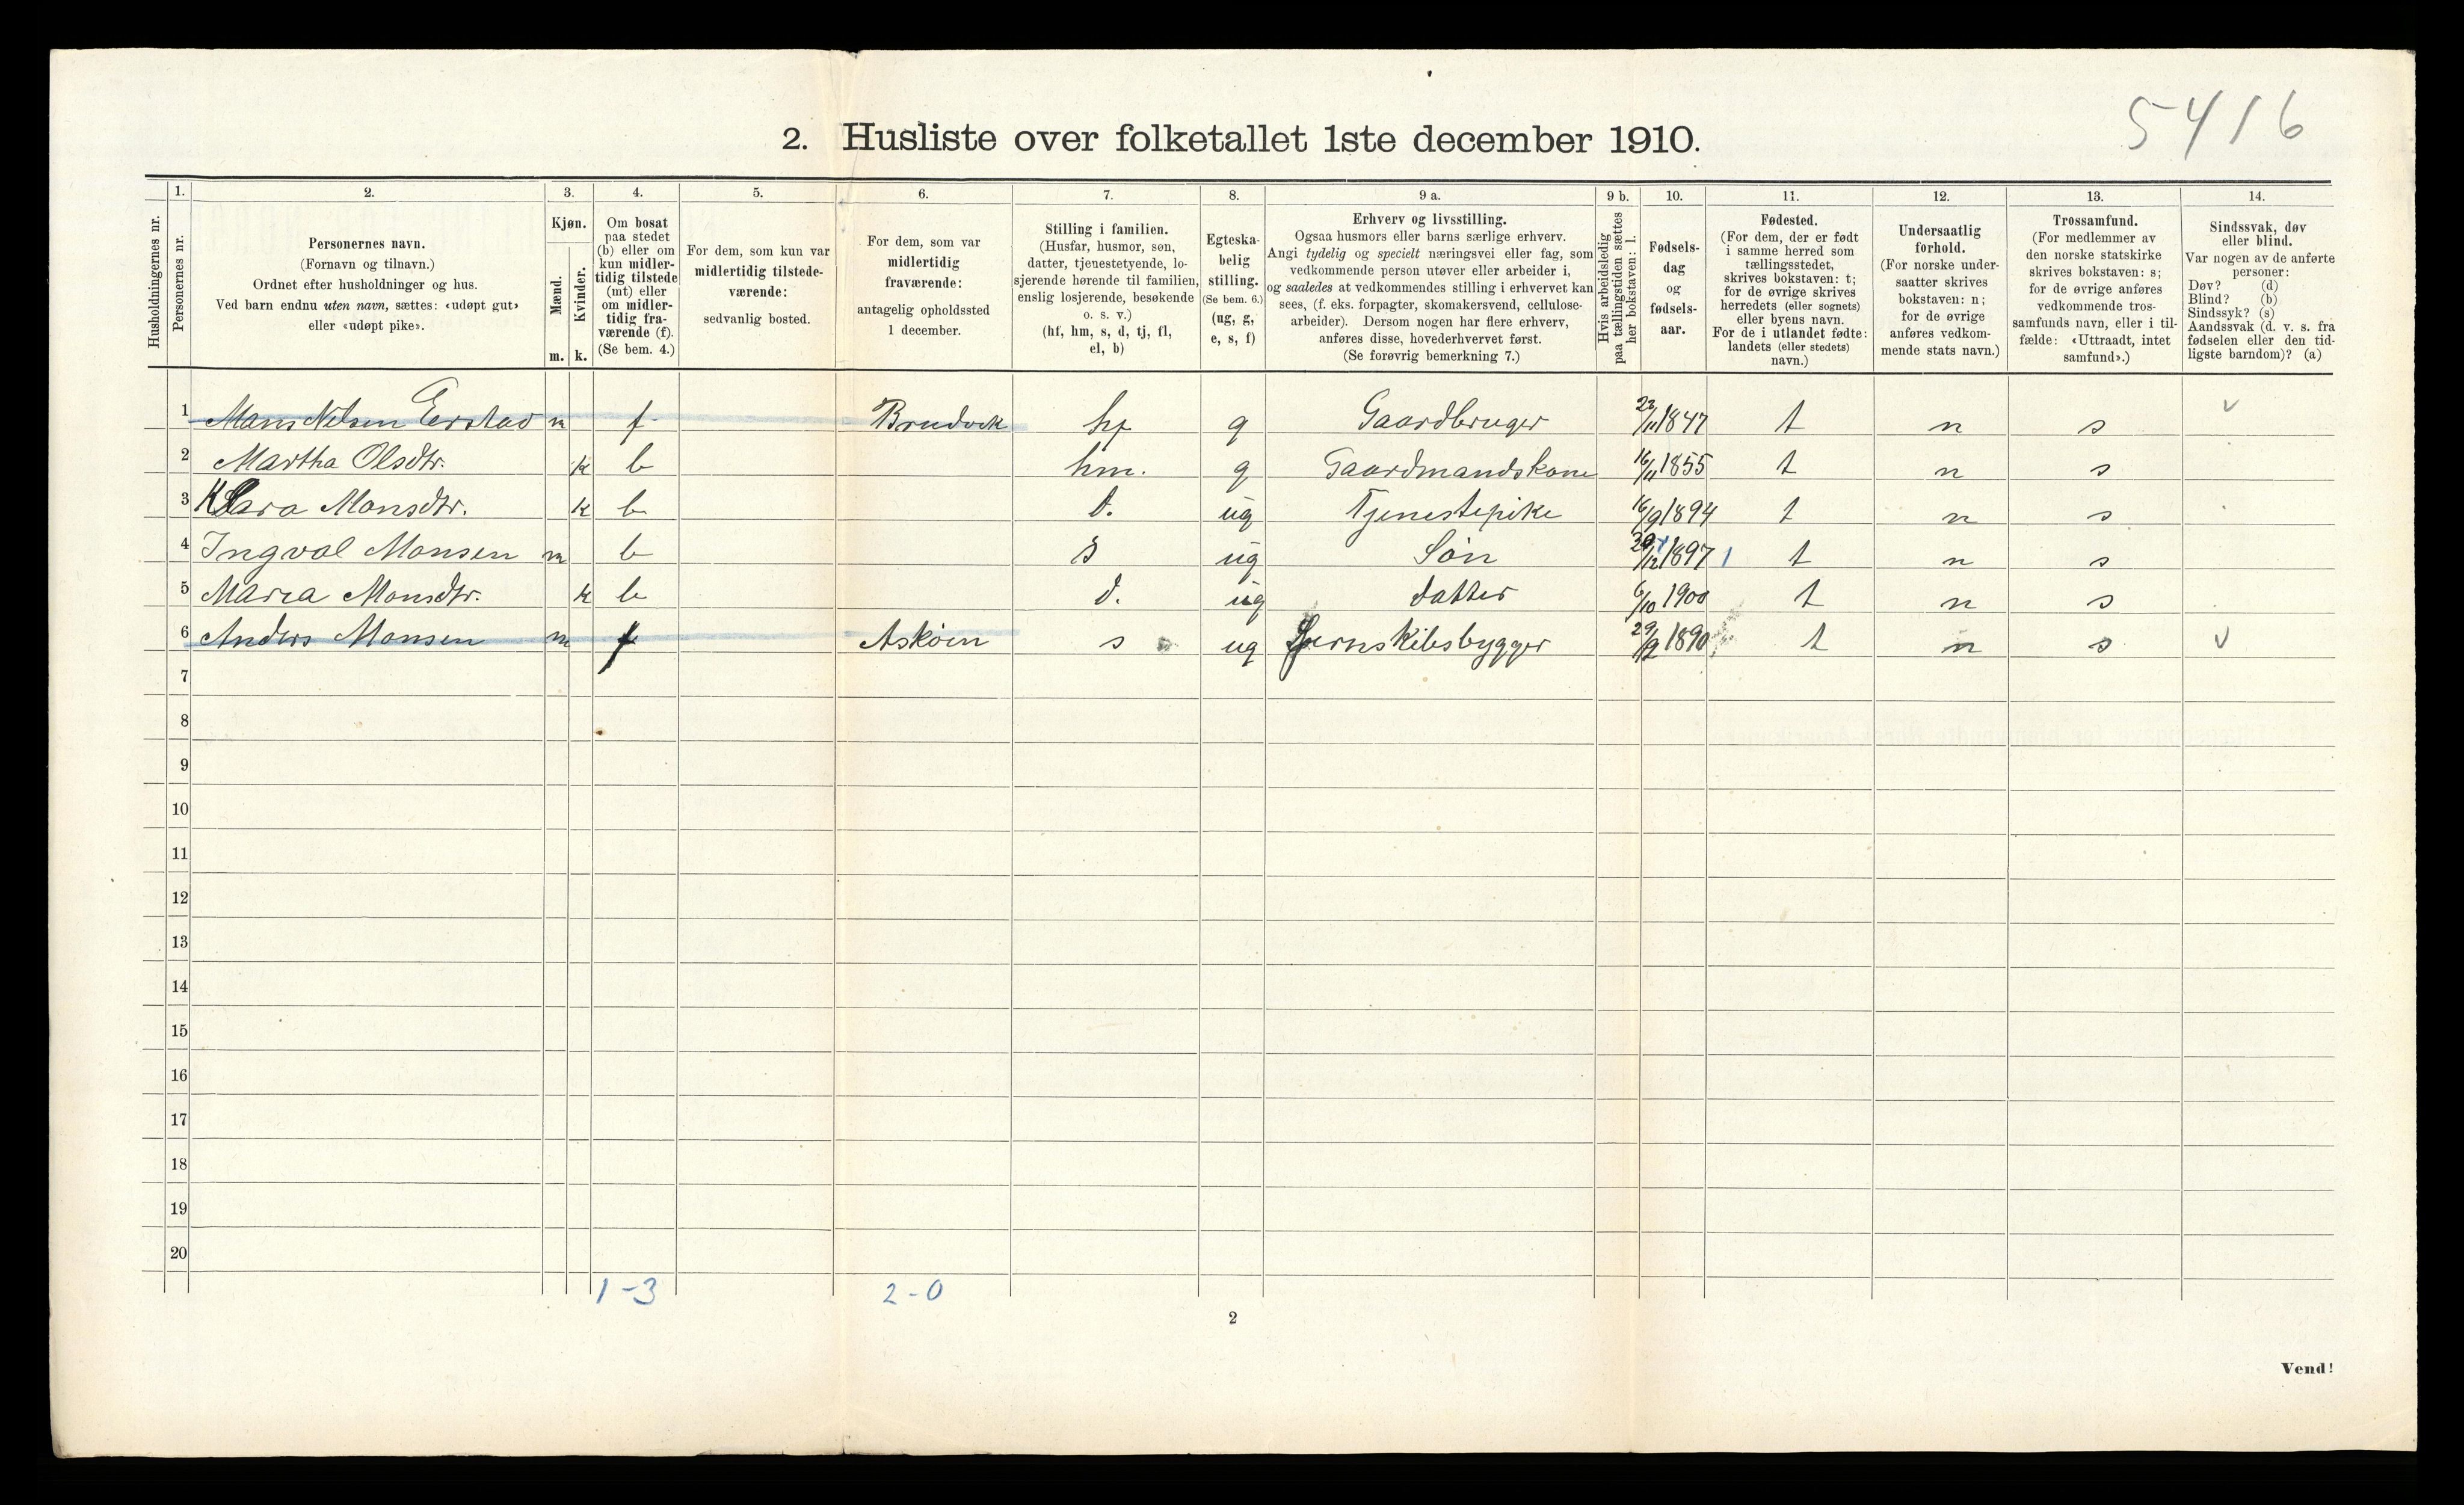 5416
2. Husliste over folketallet 1ste december 1910.
Husholdningernes nr.
1.
Personernes nr.
2.
Personernes navn.
(Fornavn og tilnavn.)
Ordnet efter husholdninger og hus.
Ved barn endnu uten navn, sættes: «udøpt gut»
eller «udøpt pike».
3.
Kjøn.
Mænd.
m.
Kvinder.
k.
4.
Om bosat
paa stedet
(b) eller om
kun midler-
tidig tilstede
(mt) eller
om midler-
tidig fra-
værende (f).
(Se bem. 4.)
5.
For dem, som kun var
midlertidig tilstede-
værende:
sedvanlig bosted.
6.
For dem, som var
midlertidig
fraværende:
antagelig opholdssted
1 december.
7.
Stilling i familien.
(Husfar, husmor, søn,
datter, tjenestetyende, lo-
sjerende hørende til familien,
enslig losjerende, besøkende
o. s. v.)
(hf, hm, s, d, tj, fl,
el, b)
8.
Egteska-
belig
stilling.
(Se bem. 6.)
(ug, g,
e, s, f)
9 a.
Erhverv og livsstilling.
Ogsaa husmors eller barns særlige erhverv.
Angi tydelig og specielt næringsvei eller fag, som
vedkommende person utøver eller arbeider i,
og saaledes at vedkommendes stilling i erhvervet kan
sees, (f. eks. forpagter, skomakersvend, cellulose-
arbeider). Dersom nogen har flere erhverv,
anføres disse, hovederhvervet først.
(Se forøvrig bemerkning 7.)
9 b.
Hvis arbeidsledig
paa tællingstiden sættes
her bokstaven: l.
10.
Fødsels-
dag
og
fødsels-
aar.
11.
Fødested.
(For dem, der er født
i samme herred som
tællingsstedet,
skrives bokstaven: t;
for de øvrige skrives
herredets (eller sognets)
eller byens navn.
For de i utlandet fødte:
landets (eller stedets)
navn.)
12.
Undersaatlig
forhold.
(For norske under-
saatter skrives
bokstaven: n;
for de øvrige
anføres vedkom-
mende stats navn.)
13.
Trossamfund.
(For medlemmer av
den norske statskirke
skrives bokstaven: s;
for de øvrige anføres
vedkommende tros-
samfunds navn, eller i til-
fælde: «Uttraadt, intet
samfund».)
14.
Sindssvak, døv
eller blind.
Var nogen av de anførte
personer:
Døv? (d)
Blind? (b)
Sindssyk? (s)
Aandssvak (d. v. s. fra
fødselen eller den tid-
ligste barndom)? (a)
1 Mons Nilsen Erstad m f Brudvik hf g Gaardbruger 1847 t n s v
2 Martha Olsdtr. k b hm. g Gaardmandskone 16/11 1855 t n s
3 Klara Monsdtr. k b d. ug Tjenestepike 16/9 1894 t n s
4 Ingval Monsen m b s ug Søn 1897 1 t n s
5 Maria Monsdtr. k b d. ug datter 6/10 1900 t n s
6 Anders Monsen m f Askøen s ug Jernskibsbygger 1890 t n s v
7
8
9
10
11
12
13
14
15
16
17
18
19
20
1-3 2-0
2
Vend!